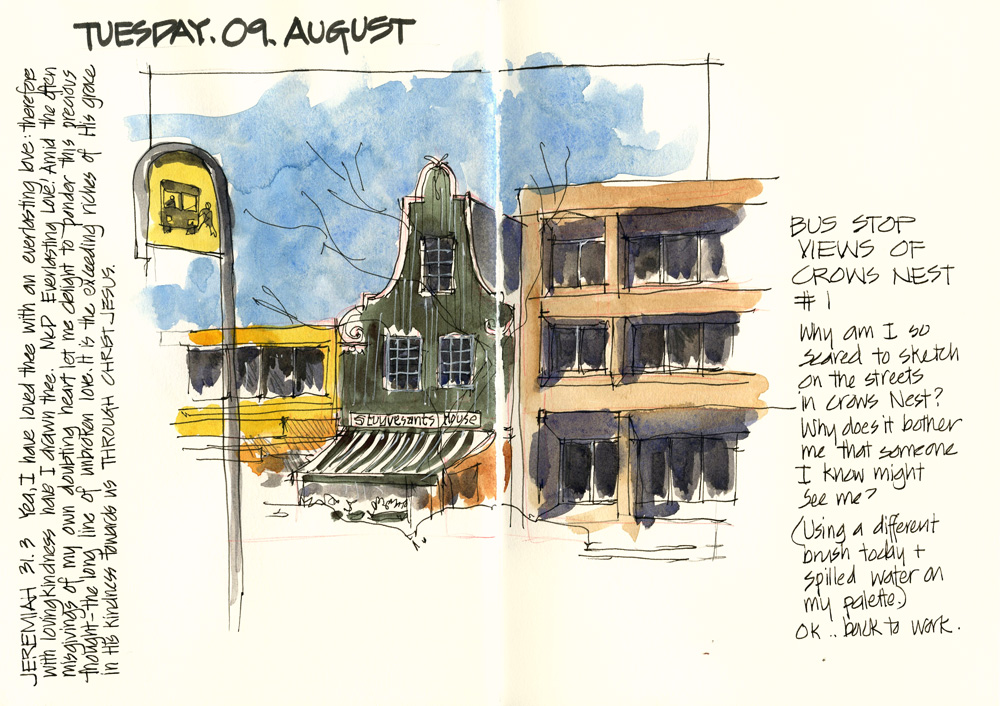 TUESDAY. 09. AUGUST
JEREMIAH 31. 3 Yea, I have loved thee with an everlasting love: therefore
with lovingkindness have I drawn thee. Everlasting Love! Amid the often
misgivings of my own doubting heart let me delight to ponder this precious
thought- the long line of unbroken love. It is the exceeding riches of His grace
in His kindness towards us THROUGH CHRIST JESUS.
Stuyvesants House
BUS STOP
VIEWS OF
CROWS NEST
#1
Why am I so
scared to sketch
on the streets
in Crows Nest?
Why does it bother
me that someone
I know might
see me?
(Using a different
brush today +
spilled water on
my palette.)
OK .. back to work.